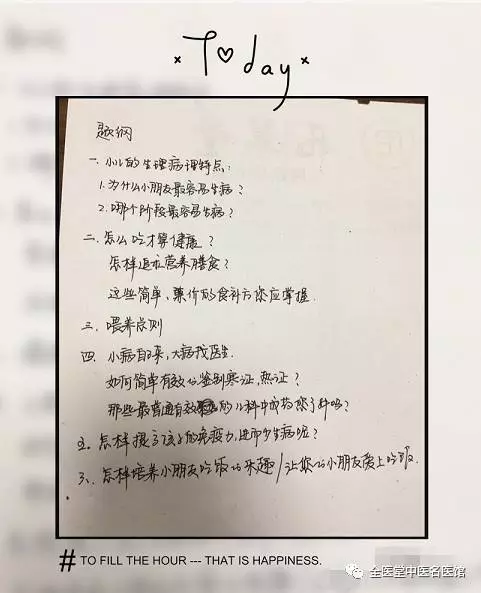 Today
题纲
一. 小儿的生理病理特点:
1. 为什么小朋友最容易生病?
2. 哪个阶段最容易生病?
二. 怎么吃才算健康?
怎样追求营养膳食?
这些简单、廉价的食补方您应掌握.
三. 喂养原则
四. 小病自己来, 大病找医生.
如何简单有效的鉴别寒证, 热证?
那些最普通有效的儿科中成药您了解吗?
五. 怎样提高孩子的免疫力, 进而少生病呢?
六. 怎样培养小朋友吃饭的乐趣/让您的小朋友爱上吃饭.
# TO FILL THE HOUR --- THAT IS HAPPINESS.
全医堂中医名医馆